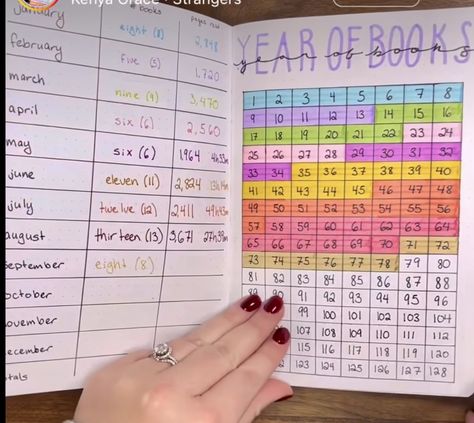 Kenya Grace · Strangers
books pages read
january eight (8) 2,848
february five (5) 1,720
march nine (9) 3,470
april six (6) 2,560
may six (6) 1,964
june eleven (11) 2,824
july twelve (12) 2,411
august thirteen (13) 3,671
september eight (8)
october
november
december
totals
YEAR OF BOOKS
year of books
1 2 3 4 5 6 7 8
9 10 11 12 13 14 15 16
17 18 19 20 21 22 23 24
25 26 27 28 29 30 31 32
33 34 35 36 37 38 39 40
41 42 43 44 45 46 47 48
49 50 51 52 53 54 55 56
57 58 59 60 61 62 63 64
65 66 67 68 69 70 71 72
73 74 75 76 77 78 79 80
81 82 83 84 85 86 87 88
91 92 93 94 95 96
99 100 101 102 103 104
107 108 109 110 111 112
115 116 117 118 119 120
123 124 125 126 127 128